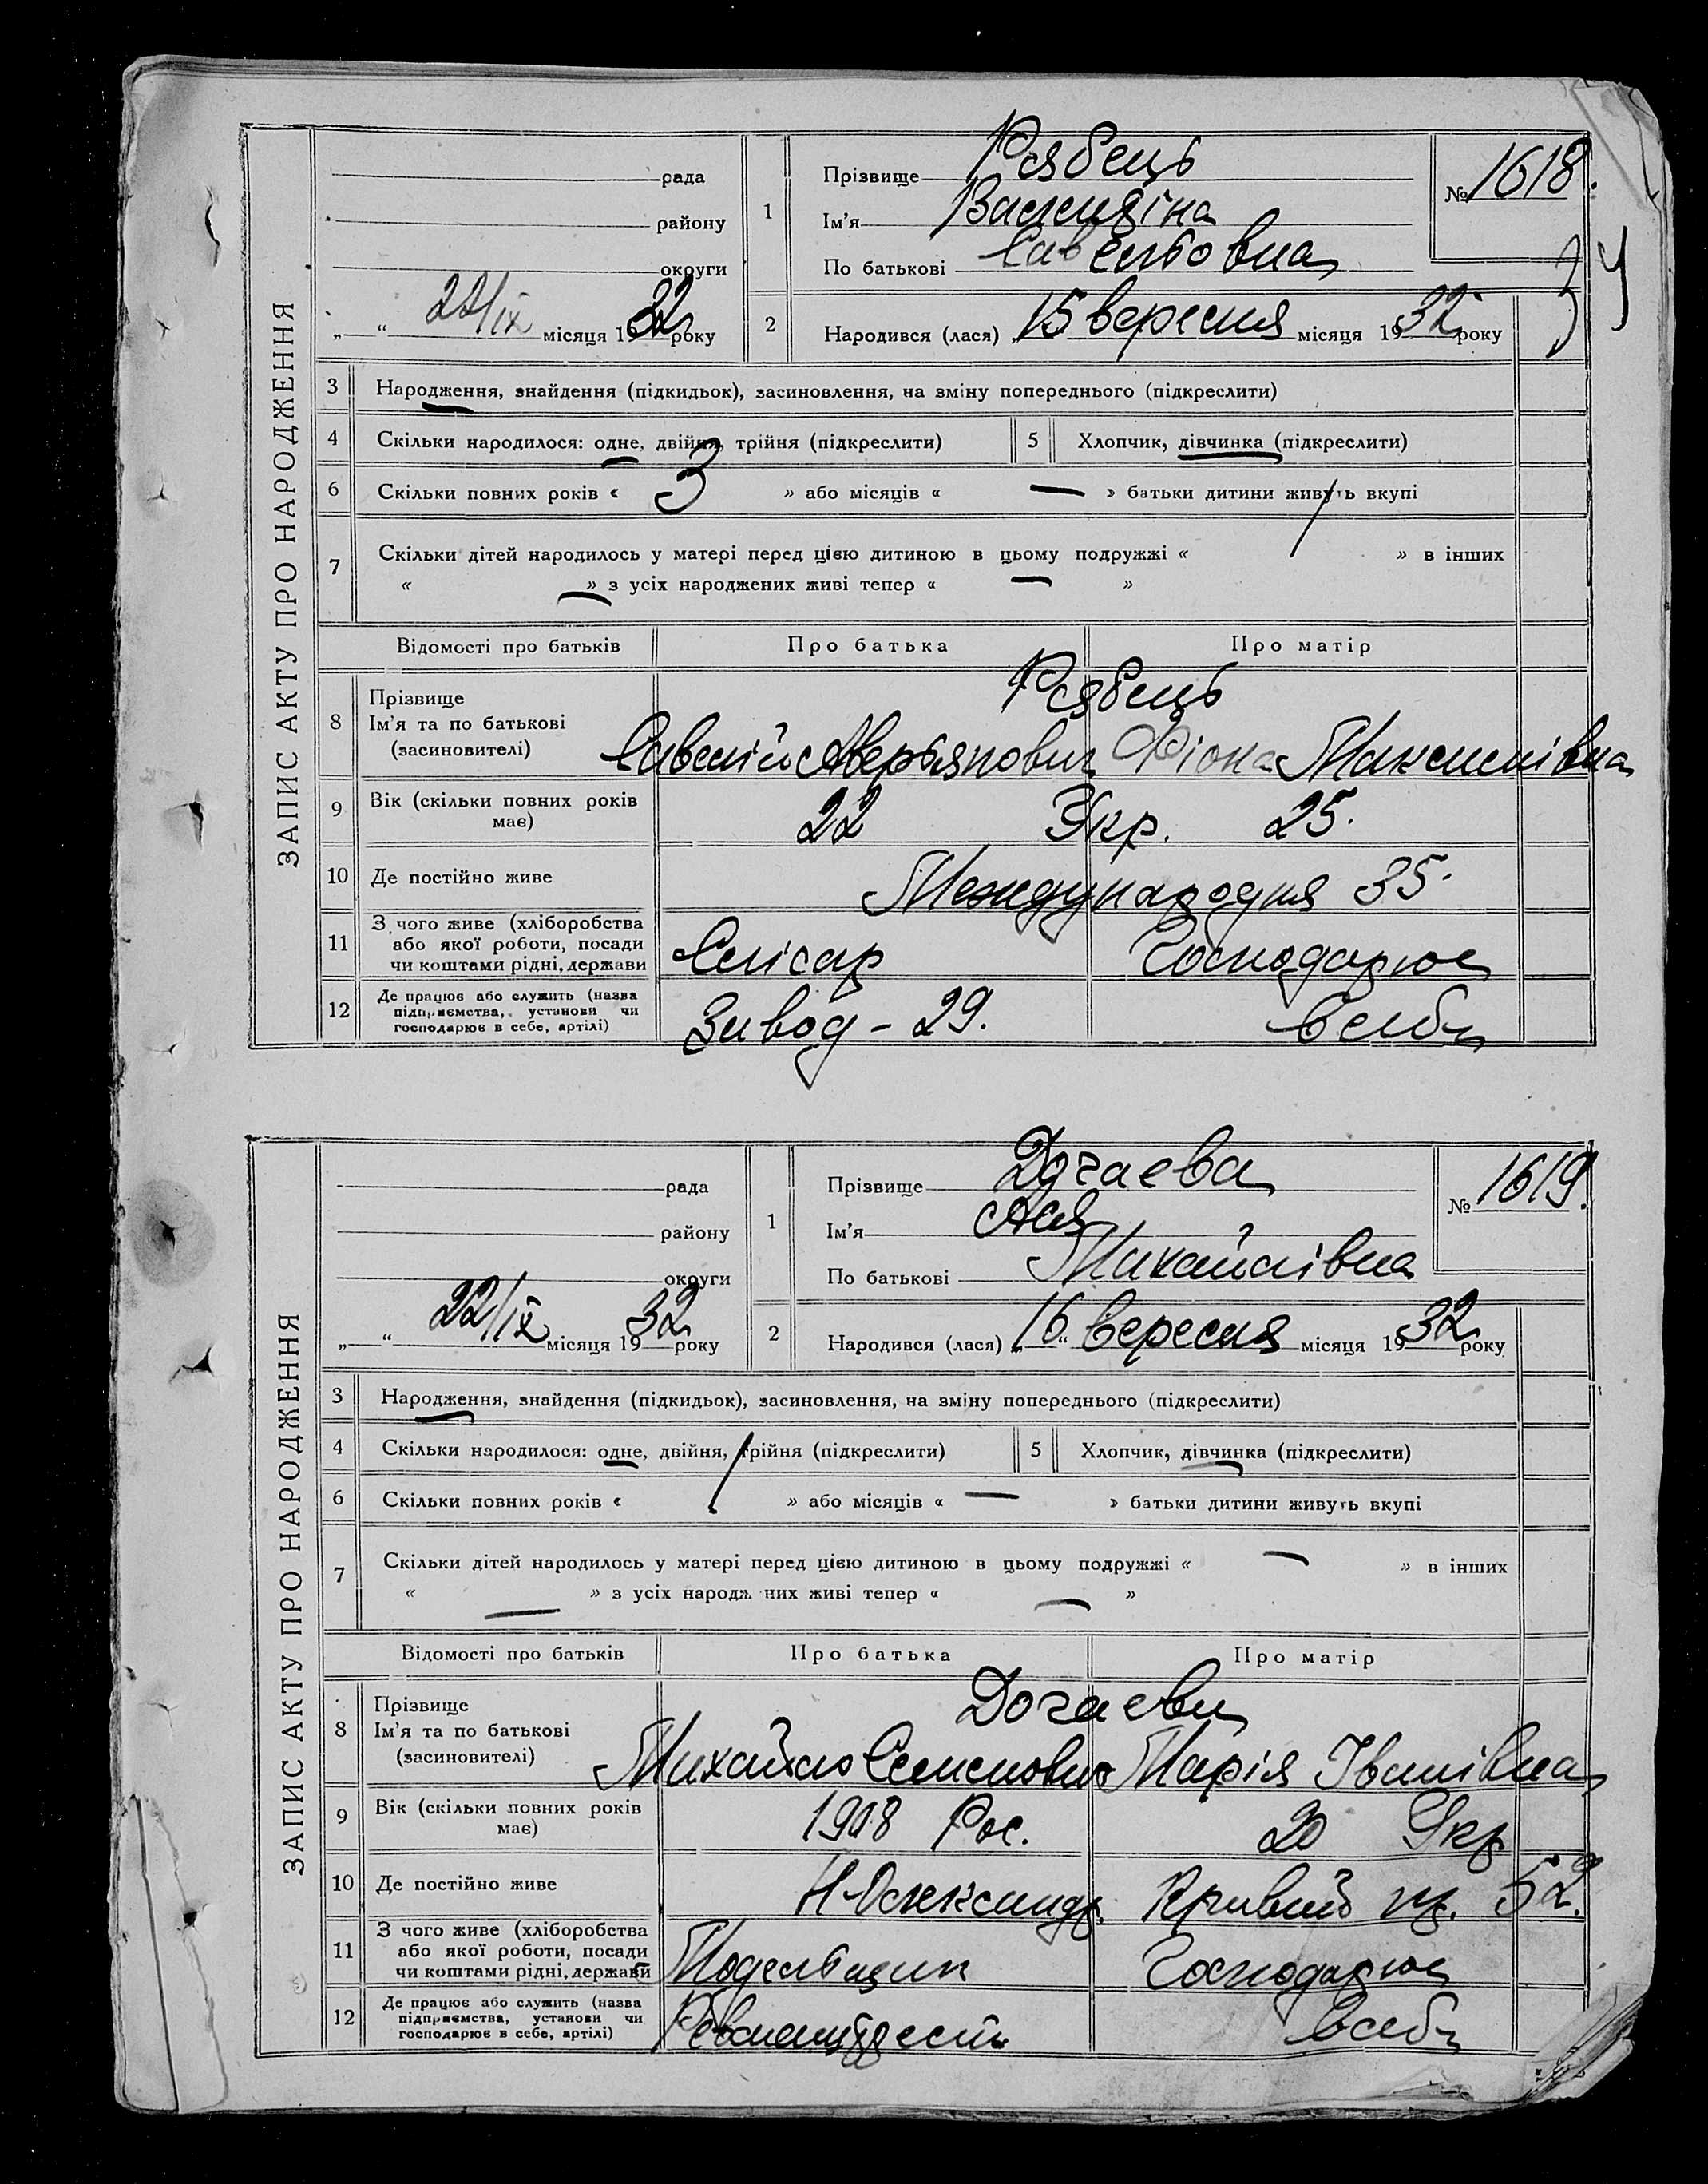 ЗАПИС АКТУ ПРО НАРОДЖЕННЯ
рада
району
округи
„ “ 22/ІХ місяця 1932 року
1
Прізвище Рябець
Ім'я
По батькові
№ 1618.
2
Народився (лася) „15 вересня місяця 1932 року
3 Народження, знайдення (підкидьок), засиновлення, на зміну попереднього (підкреслити)
4 Скільки народилося: одне, двійня, трійня (підкреслити) 5 Хлопчик, дівчинка (підкреслити)
6 Скільки повних років « 3 » або місяців « — » батьки дитини живуть вкупі
7 Скільки дітей народилось у матері перед цією дитиною в цьому подружжі « » в інших
« — » з усіх народжених живі тепер « — »
Відомості про батьків Про батька Про матір
8 Прізвище
Ім'я та по батькові
(засновителі)
Рябець
Савелій Аверьянович Фіона Максимівна
9 Вік (скільки повних років має) 22 Укр. 25.
10 Де постійно живе Международня 35.
11 З чого живе (хліборобства або якої роботи, посади чи коштами рідні, держави Слісар Господарює
12 Де працює або служить (назва підприємства, установи чи господарює в себе, артілі) Завод - 29. в себе
ЗАПИС АКТУ ПРО НАРОДЖЕННЯ
рада
району
округи
„ “ 22/ІХ місяця 1932 року
1
Прізвище Догаева
Ім'я Ася
По батькові Михайлівна
№ 1619.
2
Народився (лася) „16“ вересня місяця 1932 року
3 Народження, знайдення (підкидьок), засиновлення, на зміну попереднього (підкреслити)
4 Скільки народилося: одне, двійня, трійня (підкреслити) 5 Хлопчик, дівчинка (підкреслити)
6 Скільки повних років « » або місяців « — » батьки дитини живуть вкупі
7 Скільки дітей народилось у матері перед цією дитиною в цьому подружжі « — » в інших
« — » з усіх народж них живі тепер « — »
Відомості про батьків Про батька Про матір
8 Прізвище
Ім'я та по батькові
(засиновителі)
Догаеви
Михайло Семенович Марія Іванівна
9 Вік (скільки повних років має) Рос. 20 Укр
10 Де постійно живе Н-Олександр. Кривий 52.
11 З чого живе (хліборобства або якої роботи, посади чи коштами рідні, держави Модельщик Господарює
12 Де працює або служить (назва підприємства, установи чи господарює в себе, артілі) в себе